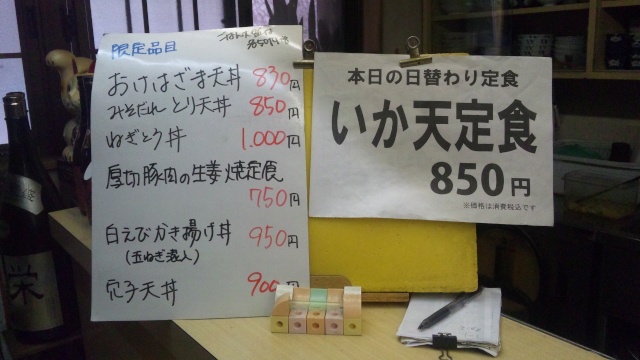 限定品目
おけはざま天丼 830円
みそだれとり天丼 850円
ねぎとり丼 1.000円
厚切豚肉の生姜焼定食
750円
白えびかき揚げ丼 950円
(玉ねぎ混入)
穴子天丼 900円
本日の日替わり定食
いか天定食
850円
※価格は消費税込です
栄